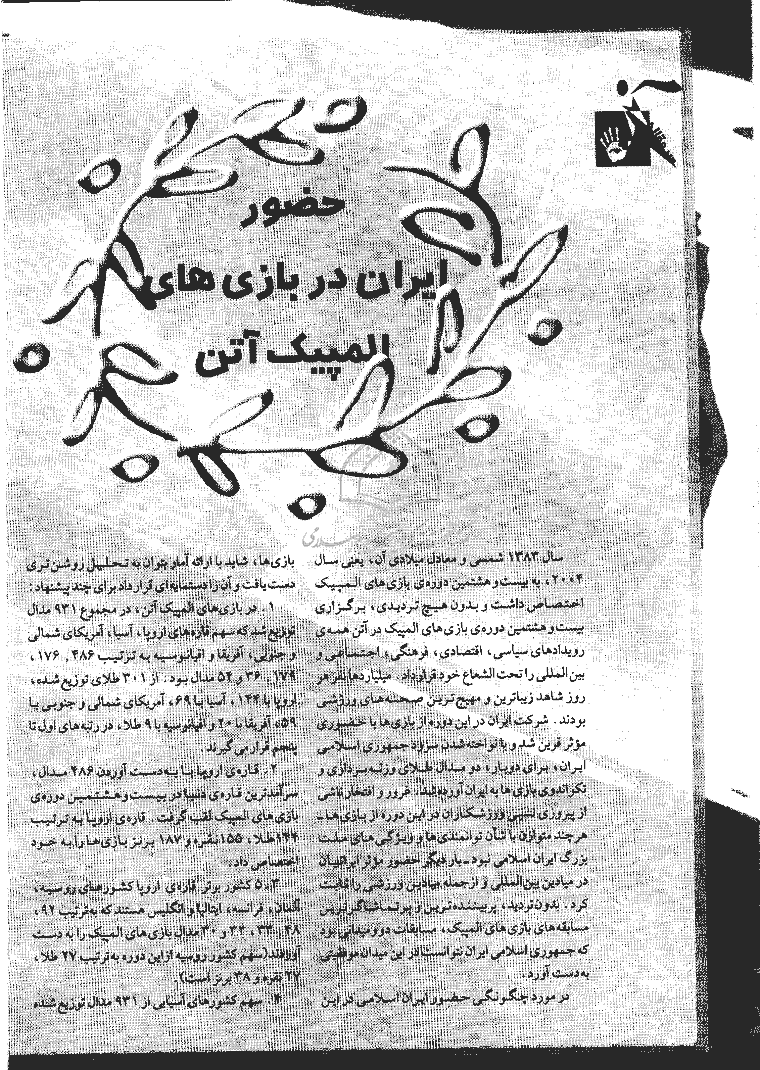 حضور
ایران در بازی های
المپیک آتن
سال ۱۳۸۳ شمسی و معادل میلادی آن، یعنی سال
۲۰۰۴، به بیست و هشتمین دوره‌ی بازی‌های المپیک
اختصاص داشت و بدون هیچ تردیدی، برگزاری
بیست و هشتمین دوره‌ی بازی‌های المپیک در آتن همه‌ی
رویدادهای سیاسی، اقتصادی، فرهنگی، اجتماعی و
بین‌المللی را تحت الشعاع خود قرار داد. میلیاردها نفر هر
روز شاهد زیباترین و مهیج‌ترین صحنه‌های ورزشی
بودند. شرکت ایران در این دوره از بازی‌ها با حضوری
مؤثر قرین شد و با نواخته شدن سرود جمهوری اسلامی
ایران، برای دوبار، دو مدال طلای وزنه‌برداری و
تکواندوی بازی‌ها به ایران آورده شد. غرور و افتخار ناشی
از پیروزی ورزشکاران در این دوره از بازی‌ها،
هر چند متوازن با شأن توانمندی‌ها و ویژگی‌های ملت
بزرگ ایران اسلامی نبود، بار دیگر حضور مؤثر ایرانیان
در میادین بین‌المللی و از جمله میادین ورزشی را ثابت
کرد. بدون تردید، پربیننده‌ترین و پرتماشاگرترین
مسابقه‌های بازی‌های المپیک، مسابقات دوومیدانی بود
که جمهوری اسلامی ایران نتوانست در این میدان موفقیتی
به دست آورد.
در مورد چگونگی حضور ایران اسلامی در این
بازی‌ها، شاید با ارائه آمار بتوان به تحلیل روشن‌تری
دست یافت و آن را دستمایه‌ای قرار داد برای چند پیشنهاد:
۱. در بازی‌های المپیک آتن، در مجموع ۹۳۱ مدال
توزیع شد که سهم قاره‌های اروپا، آسیا، آمریکای شمالی
و جنوبی، آفریقا و اقیانوسیه به ترتیب ۴۸۶، ۱۷۶،
۱۷۹، ۳۶ و ۵۴ مدال بود. از ۳۰۱ طلای توزیع شده،
اروپا با ۱۴۴، آسیا با ۶۹، آمریکای شمالی و جنوبی با
۵۹، آفریقا با ۲۰ و اقیانوسیه با ۹ طلا، در رتبه‌های اول تا
پنجم قرار می‌گیرند.
۲. قاره‌ی اروپا با به‌دست آوردن ۴۸۶ مدال،
سرآمدترین قاره‌ی دنیا در بیست و هشتمین دوره‌ی
بازی‌های المپیک لقب گرفت. قاره‌ی اروپا به ترتیب
۱۴۴ طلا، ۱۵۵ نقره و ۱۸۷ برنز بازی‌ها را به خود
اختصاص داد.
۳. ۵ کشور برتر قاره‌ی اروپا کشورهای روسیه،
آلمان، فرانسه، ایتالیا و انگلیس هستند که به‌ترتیب ۹۲،
۴۸، ۳۳، ۳۲ و ۳۰ مدال بازی‌های المپیک را به دست
آوردند (سهم کشور روسیه از این دوره به ترتیب ۲۷ طلا،
۲۷ نقره و ۳۸ برنز است).
۴. سهم کشورهای آسیایی از ۹۳۱ مدال توزیع شده